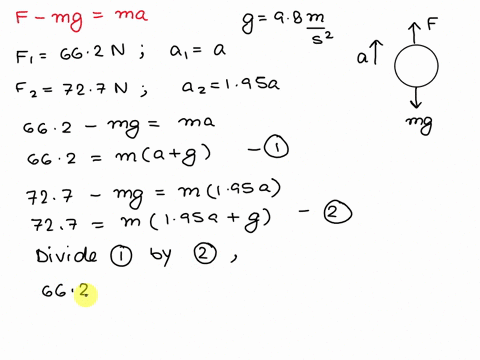 F - mg = ma
g = 9.8 m/s²
F₁ = 66.2 N ; a₁ = a
F₂ = 72.7 N ; a₂ = 1.95a
66.2 - mg = ma
66.2 = m(a+g) - ①
72.7 - mg = m(1.95a)
72.7 = m(1.95a + g) - ②
Divide ① by ② ,
66.2
F
a
mg